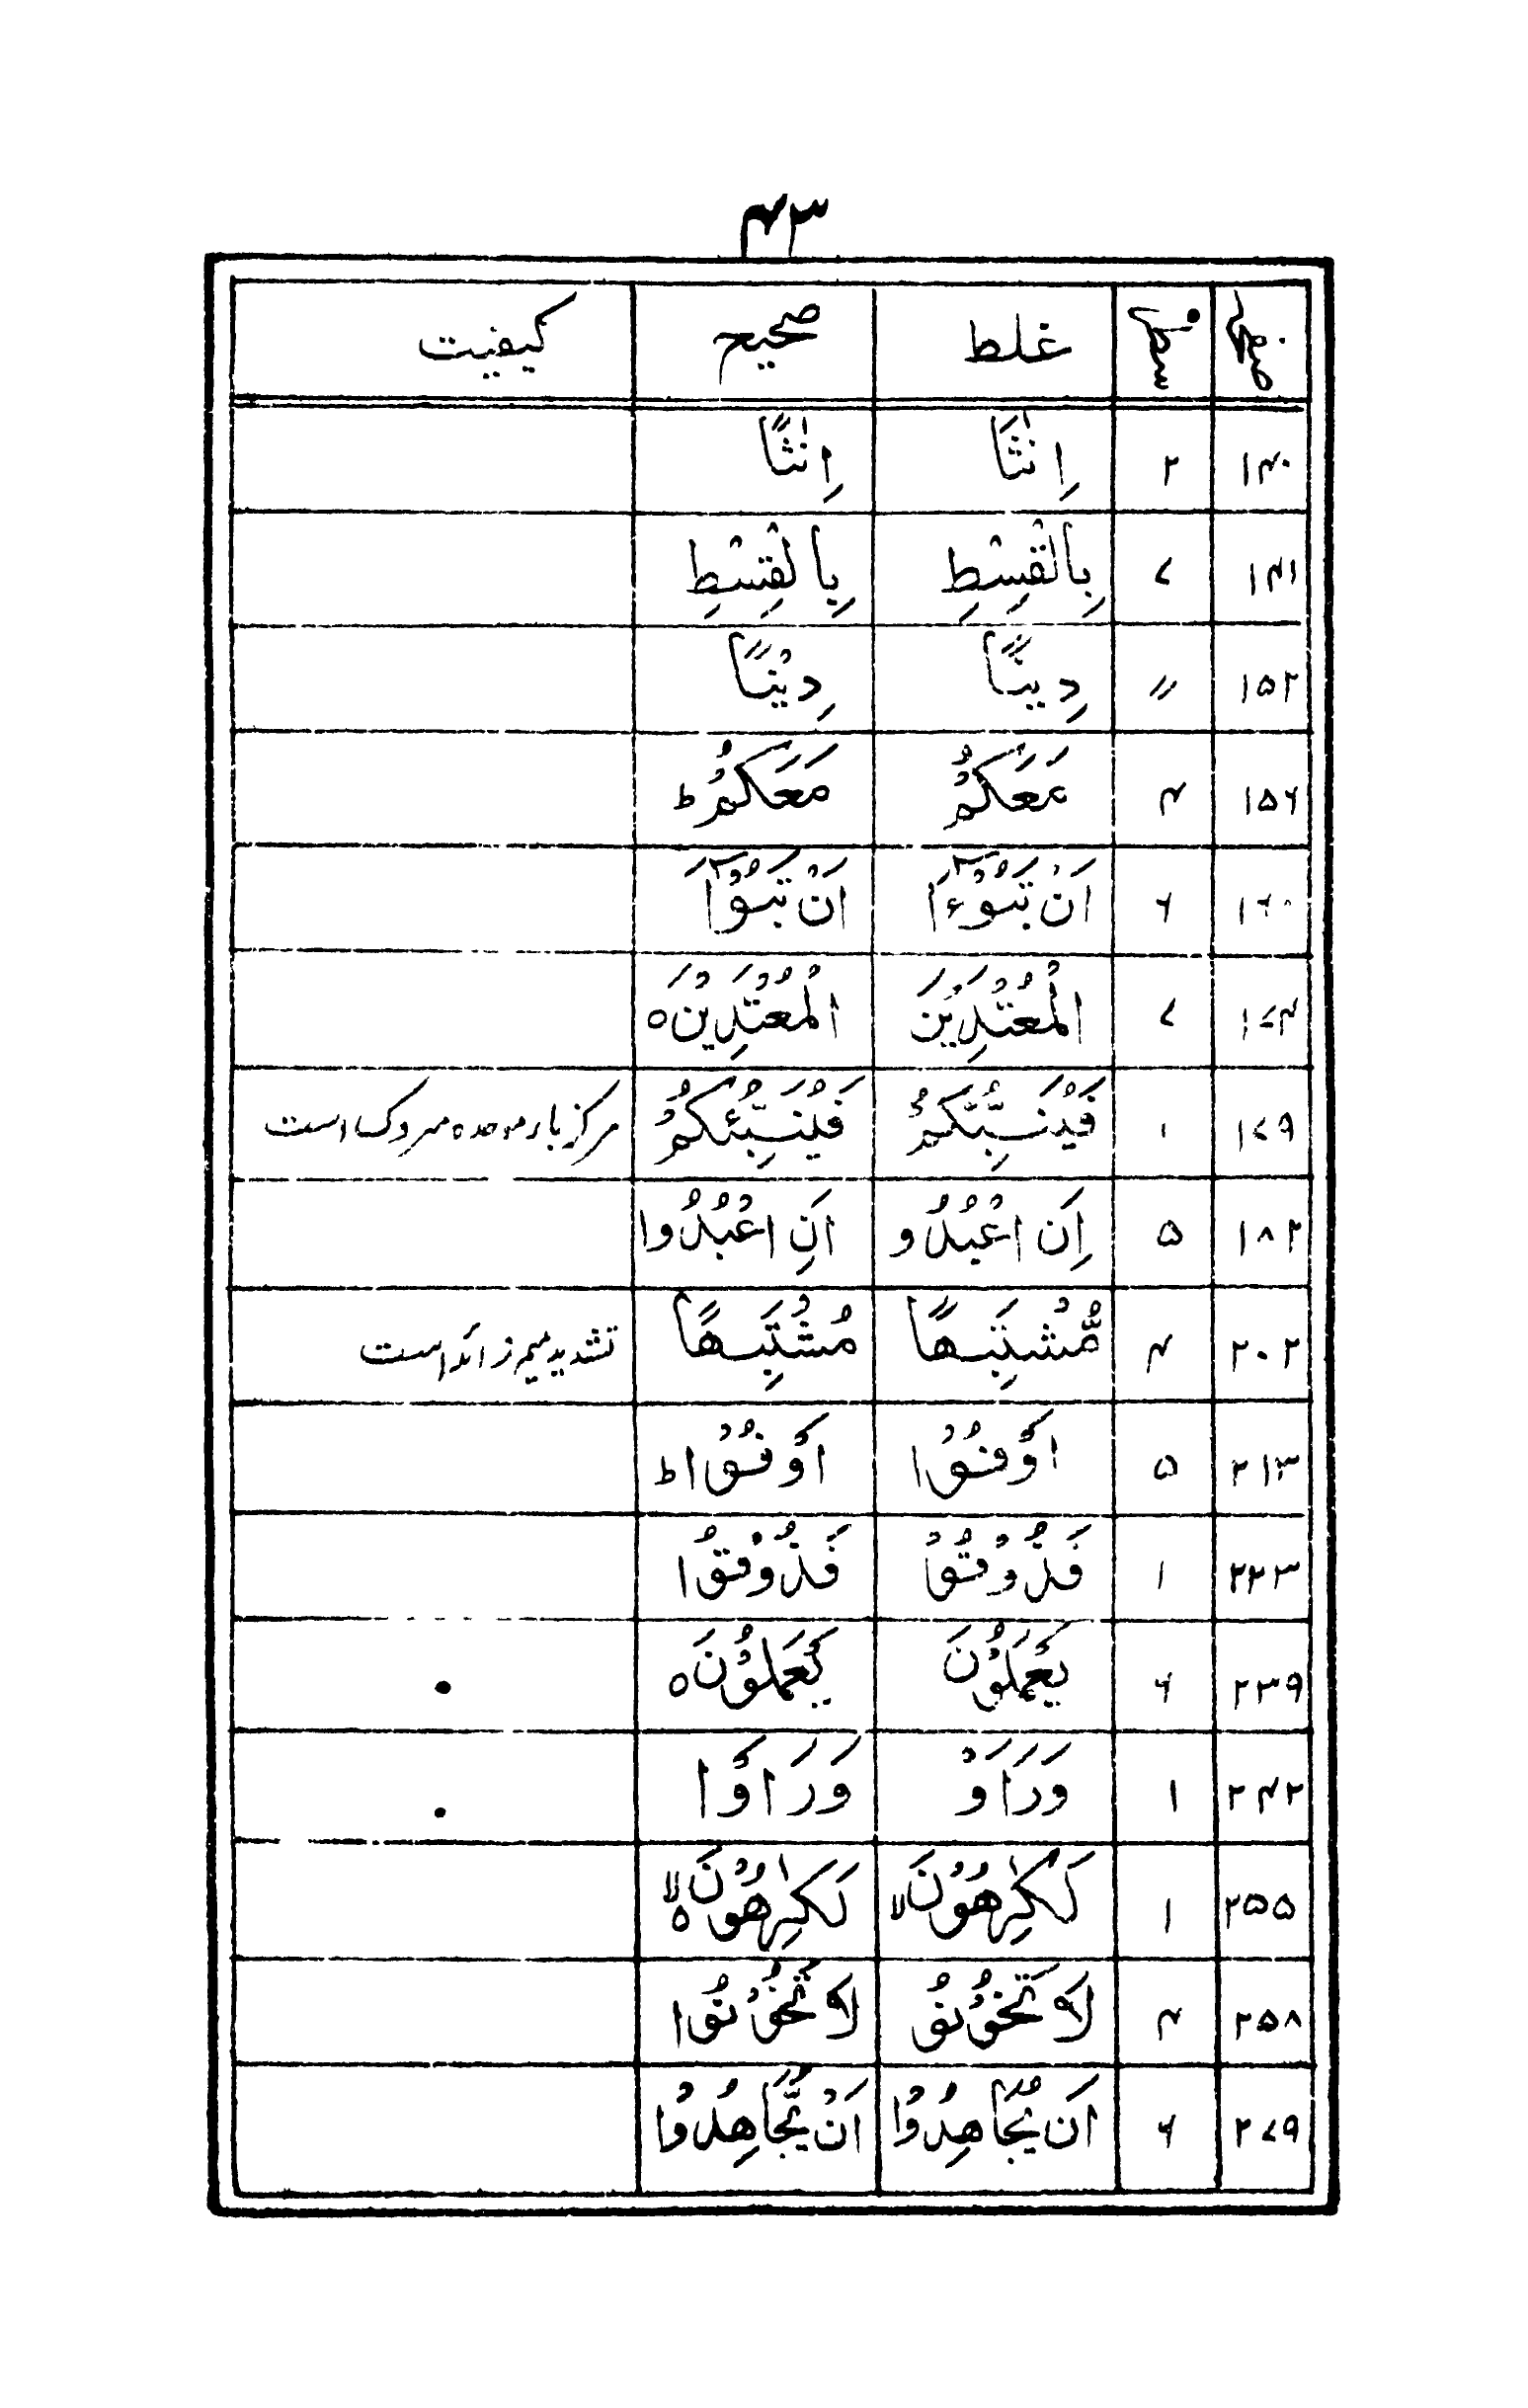 ۴۳
صفحہ سطر غلط صحیح کیفیت
۱۴۰ ۲ اِنٰثَا اِنٰثًا
۱۴۱ ۷ بِالْقِسْطِ بِالْقِسْطِ
۱۵۲ " دِینًّا دِیْنًا
۱۵۶ ۴ مَعَکُمْ مَعَکُمْ ؕ
۱۶۰ ۶ اَنْ تَبُوْٓءَا اَنْ تَبُوْٓاَ
۱۷۴ ۷ الْمُعْتَدِیْنَ الْمُعْتَدِیْنَ ہ
۱۷۹ ۱ فَیُنَبِّئُکُمْ فَیُنَبِّئُکُمْ مرکز باء موحدہ متروک است
۱۸۲ ۵ اِنَ اعْبُدُو اَنِ اعْبُدُوا
۲۰۲ ۴ مُّشْتَبِهًا مُشْتَبِهًا تشدید میم زائد است
۲۱۳ ۵ اَوْفُوْا اَوْفُوْا ؕ
۲۲۳ ۱ فَذُوْقُوْ فَذُوْقُوْا
۲۳۹ ۶ یَعْمَلُوْنَ یَعْمَلُوْنَ ہ
۲۴۲ ۱ وَرَاَوْ وَرَاَوْا
۲۵۵ ۱ لَکٰرِهُوْنَ لا لَکٰرِهُوْنَ ہ لا
۲۵۸ ۴ لَا تَخُوْنُو لَا تَخُوْنُوا
۲۷۹ ۶ اَن یُجَاهِدُوْا اَنْ یُّجَاهِدُوْا